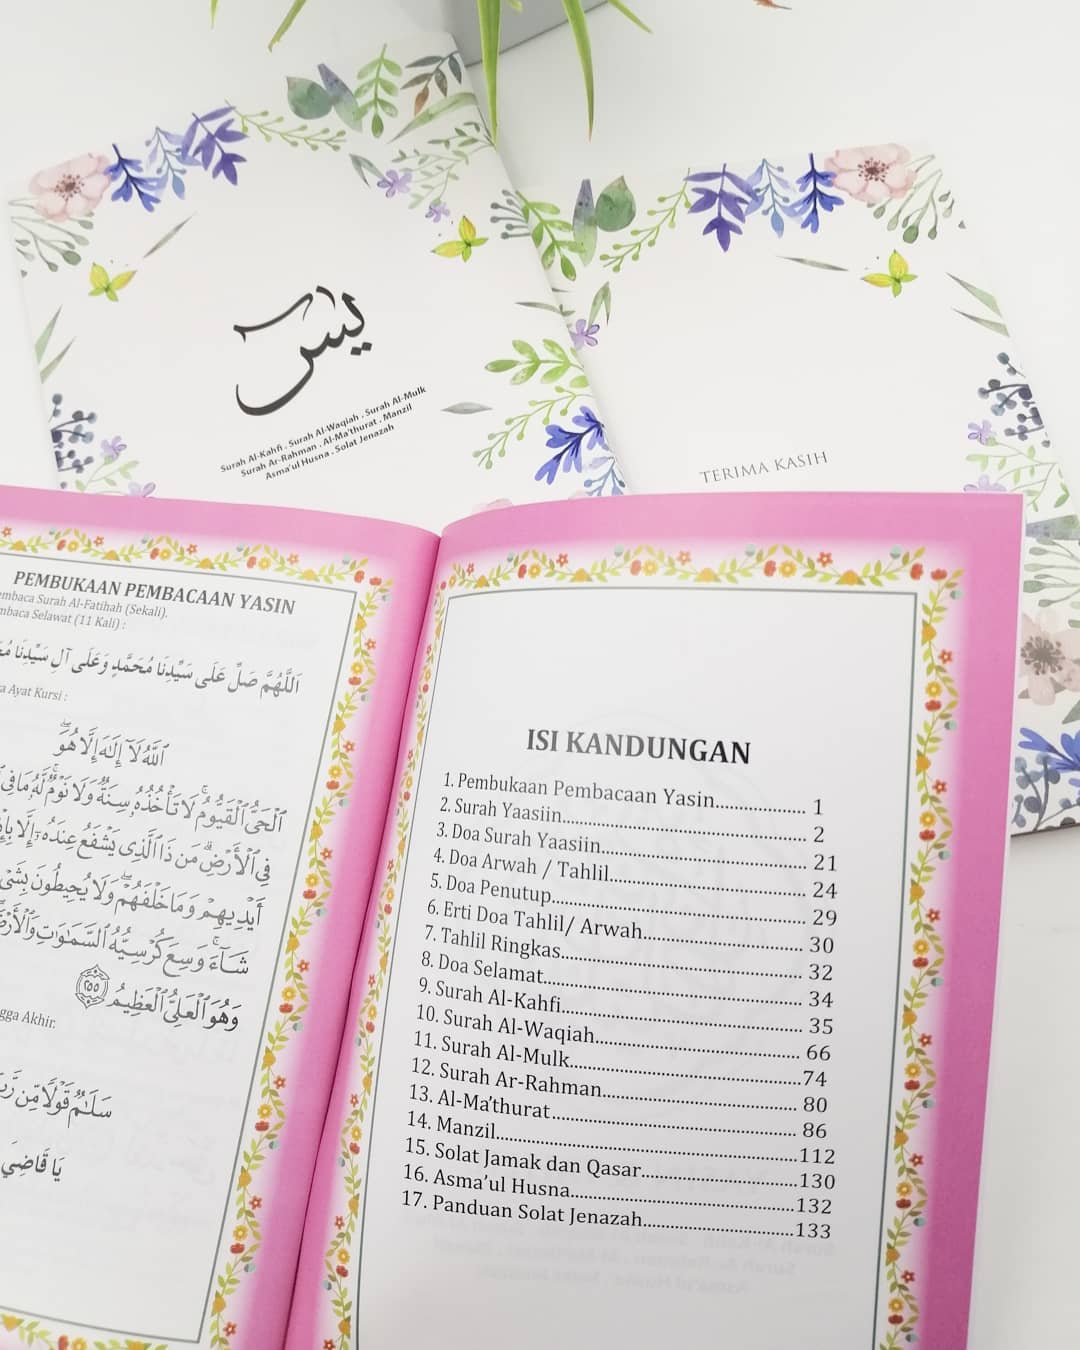 يس
Surah Al-Kahfi . Surah Al-Waqiah . Surah Al-Mulk
Surah Ar-Rahman . Al-Ma'thurat . Manzil
Asma'ul Husna . Solat Jenazah
TERIMA KASIH
PEMBUKAAN PEMBACAAN YASIN
Surah Al-Fatihah (Sekali).
Selawat (11 Kali) :
اَللّٰهُمَّ صَلِّ عَلَى سَيِّدِنَا مُحَمَّدٍ وَعَلَى آلِ سَيِّدِنَا
Ayat Kursi :
ٱللَّهُ لَآ إِلَٰهَ إِلَّا هُوَ
ٱلْحَىُّ ٱلْقَيُّومُ ۚ لَا تَأْخُذُهُۥ سِنَةٌ وَلَا نَوْمٌ ۚ لَّهُۥ مَا فِى
فِى ٱلْأَرْضِ ۗ مَن ذَا ٱلَّذِى يَشْفَعُ عِندَهُۥٓ إِلَّا
أَيْدِيهِمْ وَمَا خَلْفَهُمْ ۖ وَلَا يُحِيطُونَ
شَآءَ ۚ وَسِعَ كُرْسِيُّهُ ٱلسَّمَٰوَٰتِ
وَهُوَ ٱلْعَلِىُّ ٱلْعَظِيمُ ٢٥٥
Akhir.
سَلَٰمٌ قَوْلًا مِّن
يَا قَاضِيَ
ISI KANDUNGAN
1. Pembukaan Pembacaan Yasin.................. 1
2. Surah Yaasiin.................................................. 2
3. Doa Surah Yaasiin.......................................... 21
4. Doa Arwah / Tahlil........................................ 24
5. Doa Penutup.................................................... 29
6. Erti Doa Tahlil/ Arwah................................ 30
7. Tahlil Ringkas................................................. 32
8. Doa Selamat..................................................... 34
9. Surah Al-Kahfi................................................. 35
10. Surah Al-Waqiah.......................................... 66
11. Surah Al-Mulk...............................................74
12. Surah Ar-Rahman........................................ 80
13. Al-Ma'thurat.................................................. 86
14. Manzil.............................................................112
15. Solat Jamak dan Qasar................................130
16. Asma'ul Husna..............................................132
17. Panduan Solat Jenazah...............................133